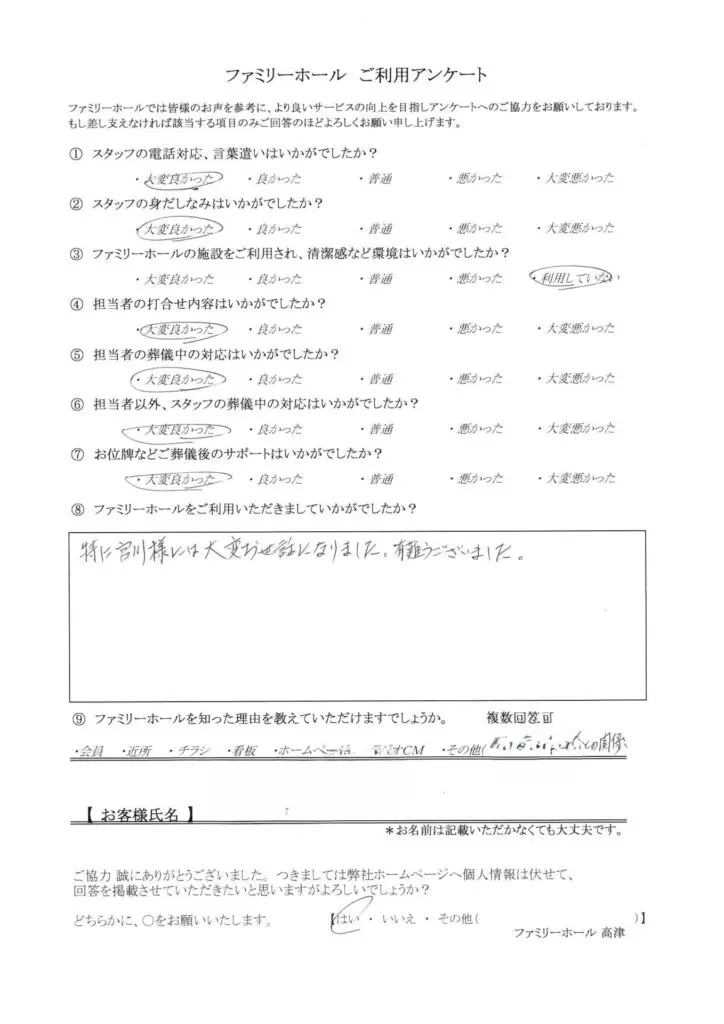 ファミリーホール ご利用アンケート
ファミリーホールでは皆様のお声を参考に、より良いサービスの向上を目指しアンケートへのご協力をお願いしております。
もし差し支えなければ該当する項目のみご回答のほどよろしくお願い申し上げます。
① スタッフの電話対応、言葉遣いはいかがでしたか？
・大変良かった ・良かった ・普通 ・悪かった ・大変悪かった
② スタッフの身だしなみはいかがでしたか？
・大変良かった ・良かった ・普通 ・悪かった ・大変悪かった
③ ファミリーホールの施設をご利用され、清潔感など環境はいかがでしたか？
・大変良かった ・良かった ・普通 ・悪かった ・利用していない
④ 担当者の打合せ内容はいかがでしたか？
・大変良かった ・良かった ・普通 ・悪かった ・大変悪かった
⑤ 担当者の葬儀中の対応はいかがでしたか？
・大変良かった ・良かった ・普通 ・悪かった ・大変悪かった
⑥ 担当者以外、スタッフの葬儀中の対応はいかがでしたか？
・大変良かった ・良かった ・普通 ・悪かった ・大変悪かった
⑦ お位牌などご葬儀後のサポートはいかがでしたか？
・大変良かった ・良かった ・普通 ・悪かった ・大変悪かった
⑧ ファミリーホールをご利用いただきましていかがでしたか？
特に宮川様には大変お世話になりました。有難うございました。
⑨ ファミリーホールを知った理由を教えていただけますでしょうか。 複数回答可
・会員 ・近所 ・チラシ ・看板 ・ホームページ CM ・その他( との関係
【 お客様氏名 】
＊お名前は記載いただかなくても大丈夫です。
ご協力 誠にありがとうございました。つきましては弊社ホームページへ個人情報は伏せて、
回答を掲載させていただきたいと思いますがよろしいでしょうか？
どちらかに、○をお願いいたします。 【はい ・ いいえ ・ その他( )】
ファミリーホール 高津